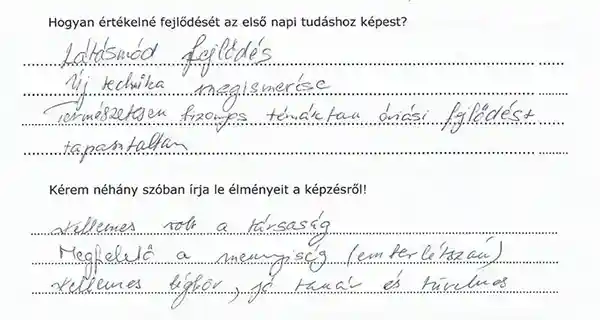 Hogyan értékelné fejlődését az első napi tudáshoz képest?
Látásmód fejlődés
Új technika megismerése
Természetesen bizonyos témákban óriási fejlődést
tapasztaltam
Kérem néhány szóban írja le élményeit a képzésről!
Kellemes volt a társaság
Megfelelő a mennyiség (emberlétszám)
Kellemes légkör, jó tanár és türelmes